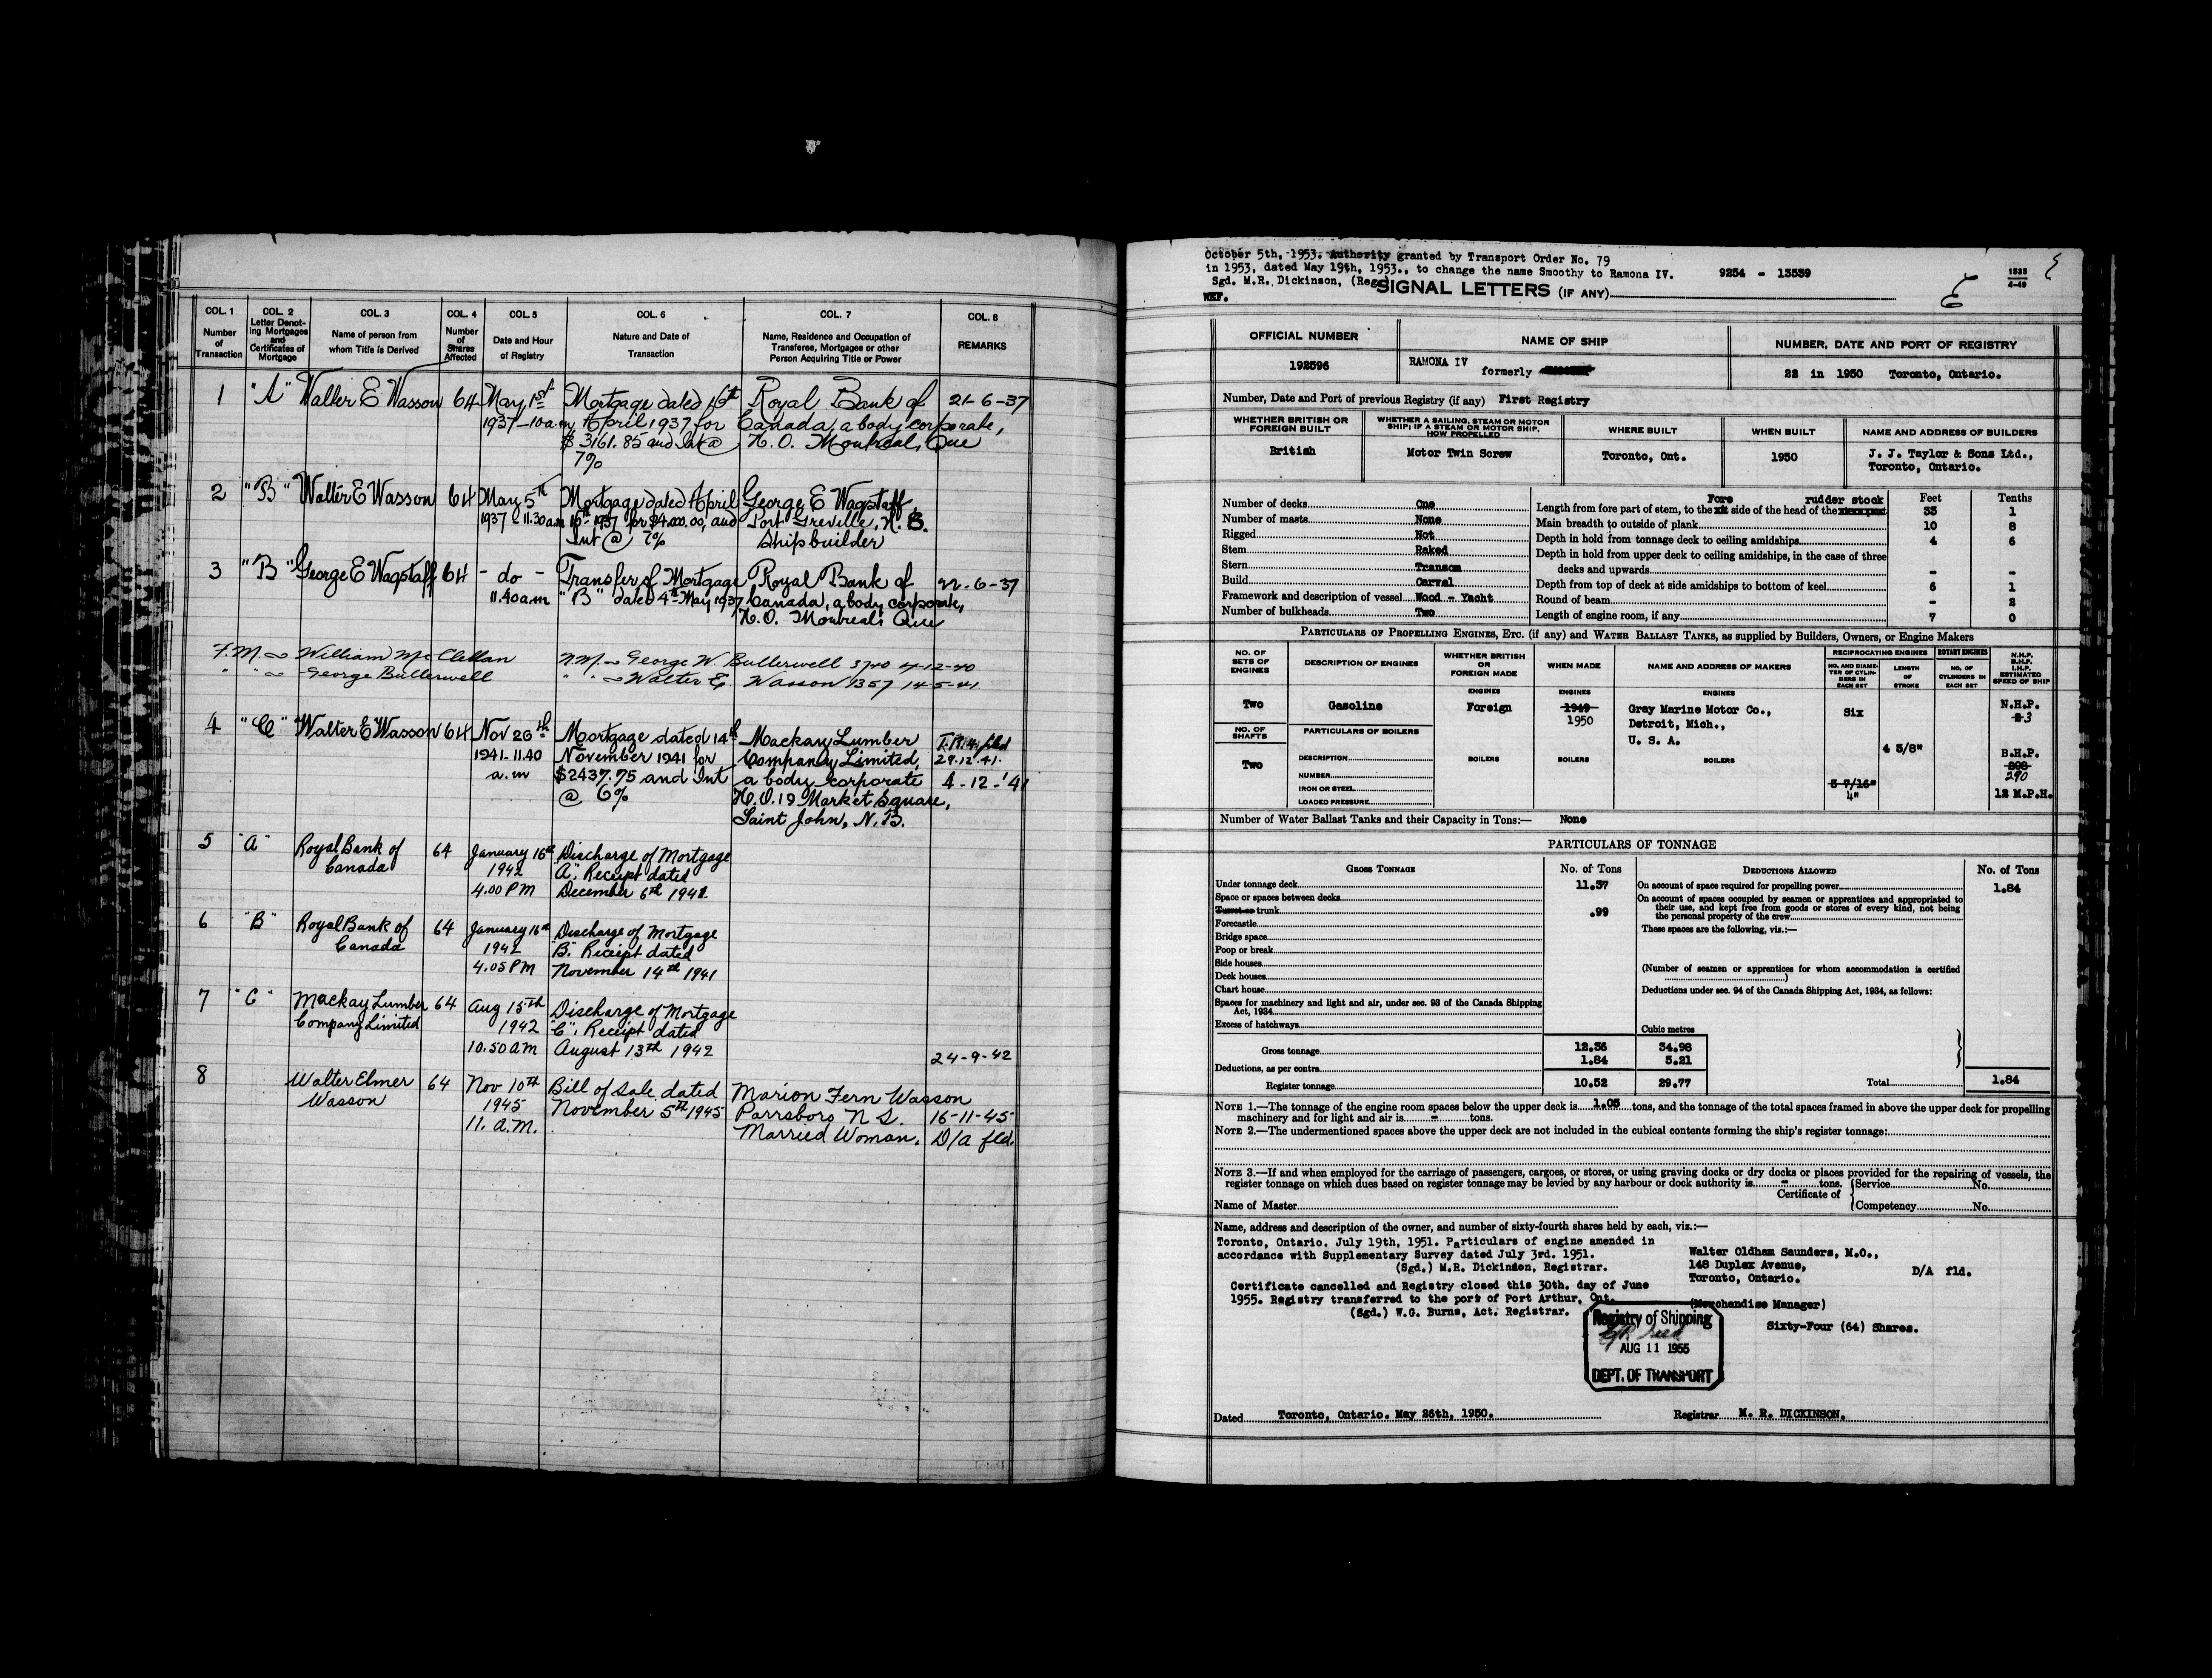 COL. 1 COL. 2 COL. 3 COL. 4 COL. 5 COL. 6 COL. 7 COL. 8
Number of Transaction
Letter Denoting Mortgages and Certificates of Mortgage
Name of person from whom Title is Derived
Number of Shares Affected
Date and Hour of Registry
Nature and Date of Transaction
Name, Residence and Occupation of Transferee, Mortgagee or other Person Acquiring Title or Power
REMARKS
1 "A" Walter E Wasson 64 May 1st Mortgage dated 16th Royal Bank of 21-6-37
1937-10 a.m. April 1937 for Canada, a body corporate,
$3161.85 and Int @ H.O. Montreal, Que
7%
2 "B" Walter E Wasson 64 May 5th Mortgage dated April George E Wagstaff,
1937 - 11.30 a.m 16th 1937 for $4.000.00, and Port Greville, N.S.
Int @ 7% Shipbuilder
3 "B" George E Wagstaff 64 - do - Transfer of Mortgage Royal Bank of 22-6-37
11.40 a.m "B" dated 4th May 1937 Canada, a body corporate,
H.O. Montreal, Que
F.M. William McClellan N.M. George W. Bullerwell 3740 4-12-40
" " George Bullerwell " " Walter E. Wasson 1357 14-5-41
4 "C" Walter E Wasson 64 Nov 26th Mortgage dated 14th Mackay Lumber filed
1941-11.40 November 1941 for Company Limited, 29.12.41.
a.m $2437.75 and Int a body corporate 4-12-'41
@ 6% H.O. 19 Market Square,
Saint John, N.B.
5 "A" Royal Bank of 64 January 16th Discharge of Mortgage
Canada 1942 "A", Receipt dated
4.00 PM December 6th 1941.
6 "B" Royal Bank of 64 January 16th Discharge of Mortgage
Canada 1942 "B". Receipt dated
4.05 PM November 14th 1941
7 "C" Mackay Lumber 64 Aug 15th Discharge of Mortgage
Company Limited 1942 "C", Receipt dated
10.50 AM August 13th 1942 24-9-42
8 Walter Elmer 64 Nov 10th Bill of Sale dated Marion Fern Wasson
Wasson 1945 November 5th 1945 Parrsboro N S. 16-11-45
11. A.M. Married Woman. D/A fld.
October 5th, 1953. Authority granted by Transport Order No. 79
in 1953, dated May 19th, 1953., to change the name Smoothy to Ramona IV. 9254 - 13539
Sgd. M.R. Dickinson, (Reg)
WKF.
SIGNAL LETTERS (IF ANY)
1535
4-49
OFFICIAL NUMBER NAME OF SHIP NUMBER, DATE AND PORT OF REGISTRY
192596 RAMONA IV formerly 22 in 1950 Toronto, Ontario.
Number, Date and Port of previous Registry (if any) First Registry
WHETHER BRITISH OR FOREIGN BUILT
WHETHER A SAILING, STEAM OR MOTOR SHIP; IF A STEAM OR MOTOR SHIP, HOW PROPELLED
WHERE BUILT WHEN BUILT NAME AND ADDRESS OF BUILDERS
British Motor Twin Screw Toronto, Ont. 1950 J. J. Taylor & Sons Ltd.,
Toronto, Ontario.
Feet Tenths
Number of decks One
Number of masts None
Rigged Not
Stem Raked
Stern Transom
Build Carvel
Framework and description of vessel Wood - Yacht
Number of bulkheads Two
Fore rudder stock
Length from fore part of stem, to the side of the head of the 33 1
Main breadth to outside of plank 10 8
Depth in hold from tonnage deck to ceiling amidships 4 6
Depth in hold from upper deck to ceiling amidships, in the case of three
decks and upwards - -
Depth from top of deck at side amidships to bottom of keel 6 1
Round of beam - 2
Length of engine room, if any 7 0
PARTICULARS OF PROPELLING ENGINES, ETC. (if any) and WATER BALLAST TANKS, as supplied by Builders, Owners, or Engine Makers
NO. OF SETS OF ENGINES
DESCRIPTION OF ENGINES
WHETHER BRITISH OR FOREIGN MADE
WHEN MADE
NAME AND ADDRESS OF MAKERS
RECIPROCATING ENGINES
ROTARY ENGINES
NO. AND DIAMETER OF CYLINDERS IN EACH SET
LENGTH OF STROKE
NO. OF CYLINDERS IN EACH SET
N.H.P. B.H.P. I.H.P. ESTIMATED SPEED OF SHIP
ENGINES ENGINES ENGINES
Two Gasoline Foreign 1949 Gray Marine Motor Co., Six N.H.P.
1950 Detroit, Mich., 3
U. S. A.
NO. OF SHAFTS
PARTICULARS OF BOILERS
4 5/8"
Two DESCRIPTION BOILERS BOILERS BOILERS B.H.P.
NUMBER 208
290
IRON OR STEEL 3 7/16"
LOADED PRESSURE 4" 12 M.P.H.
Number of Water Ballast Tanks and their Capacity in Tons:— None
PARTICULARS OF TONNAGE
GROSS TONNAGE No. of Tons DEDUCTIONS ALLOWED No. of Tons
Under tonnage deck 11.37
Space or spaces between decks
Turret or trunk .99
Forecastle
Bridge space
Poop or break
Side houses
Deck houses
Chart house
Spaces for machinery and light and air, under sec. 93 of the Canada Shipping
Act, 1934
Excess of hatchways
Cubic metres
Gross tonnage 12.36 34.98
Deductions, as per contra 1.84 5.21
Register tonnage 10.52 29.77
On account of space required for propelling power 1.84
On account of spaces occupied by seamen or apprentices and appropriated to
their use, and kept free from goods or stores of every kind, not being
the personal property of the crew
These spaces are the following, viz.:—
(Number of seamen or apprentices for whom accommodation is certified
)
Deductions under sec. 94 of the Canada Shipping Act, 1934, as follows:
Total 1.84
NOTE 1.—The tonnage of the engine room spaces below the upper deck is 1.05 tons, and the tonnage of the total spaces framed in above the upper deck for propelling
machinery and for light and air is - tons.
NOTE 2.—The undermentioned spaces above the upper deck are not included in the cubical contents forming the ship's register tonnage:
NOTE 3.—If and when employed for the carriage of passengers, cargoes, or stores, or using graving docks or dry docks or places provided for the repairing of vessels, the
register tonnage on which dues based on register tonnage may be levied by any harbour or dock authority is - tons.
Certificate of Service No.
Competency No.
Name of Master
Name, address and description of the owner, and number of sixty-fourth shares held by each, viz.:—
Toronto, Ontario. July 19th, 1951. Particulars of engine amended in
accordance with Supplementary Survey dated July 3rd. 1951.
(Sgd.) M.R. Dickinson, Registrar.
Certificate cancelled and Registry closed this 30th. day of June
1955. Registry transferred to the port of Port Arthur, Ont.
(Sgd.) W.G. Burns, Act. Registrar.
Walter Oldham Saunders, M.O.,
148 Duplex Avenue, D/A fld.
Toronto, Ontario.
(Merchandise Manager)
Sixty-Four (64) Shares.
Registry of Shipping
AUG 11 1955
DEPT. OF TRANSPORT
Dated Toronto, Ontario. May 26th, 1950. Registrar M. R. DICKINSON.